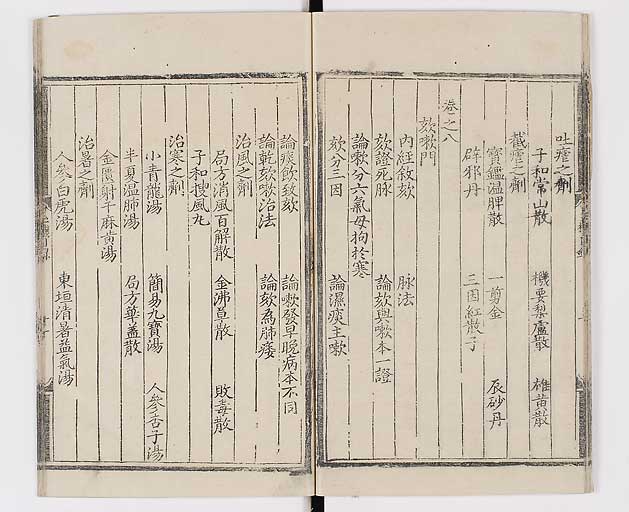 吐瘧之劑
子和常山散 機要梨盧散 雄黃散
截瘧之劑
寶鑑温脾散 一剪金 辰砂丹
辟邪丹 三因紅散子
卷之八
欬嗽門
内經敘欬 脉法
欬證死脉 論欬與嗽本一證
論嗽分六氣毋拘於寒
欬分三因 論濕痰主嗽
論痰飲致欬 論嗽發早晩病本不同
論乾欬嗽治法 論欬為肺痿
治風之劑
局方消風百解散 金沸草散 敗毒散
子和搜風丸
治寒之劑
小青龍湯 簡易九寶湯 人參杏子湯
半夏温肺湯 局方華蓋散
金匱射干麻黄湯
治暑之劑
人參白虎湯 東垣清暑益氣湯